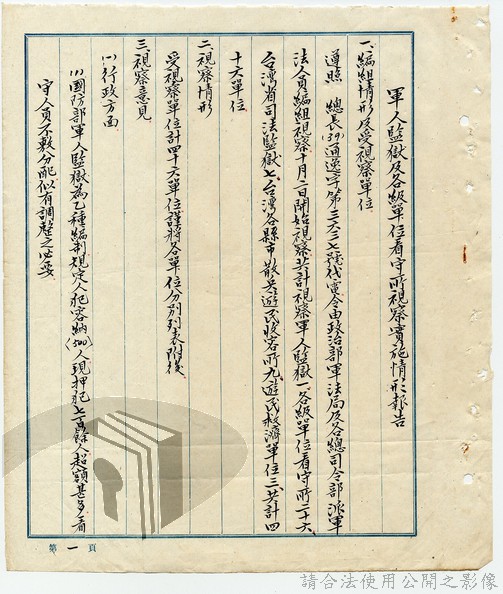 軍人監獄及各級單位看守所視察實施情形報告
一、編組情形及受視察單位
遵照 總長(39)通逮字第三六三七號代電令由政治部軍法局及各總司令部派軍
法人員編組視察十月二日開始視察共計視察軍人監獄一、各級單位看守所二十六、
台灣省司法監獄七、台灣各縣市散兵遊民收容所九、遊民救濟單位三、共計四
十六單位
二、視察情形
受視察單位計四十六單位謹將各單位分別列表附後
三、視察意見
(一)行政方面
(1)國防部軍人監獄為乙種編制規定人犯容納(500)人現押犯七百餘人超額甚多看
守人員不敷分配似有調整之必要
第一頁
請合法使用公開之影像